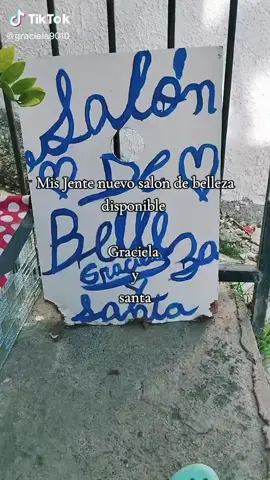 TikTok
@graciela9010
Salón
De
Mis Jente nuevo salon de belleza
disponible
Belleza
Graciela
Graciela
y
y
santa
santa
TikTok